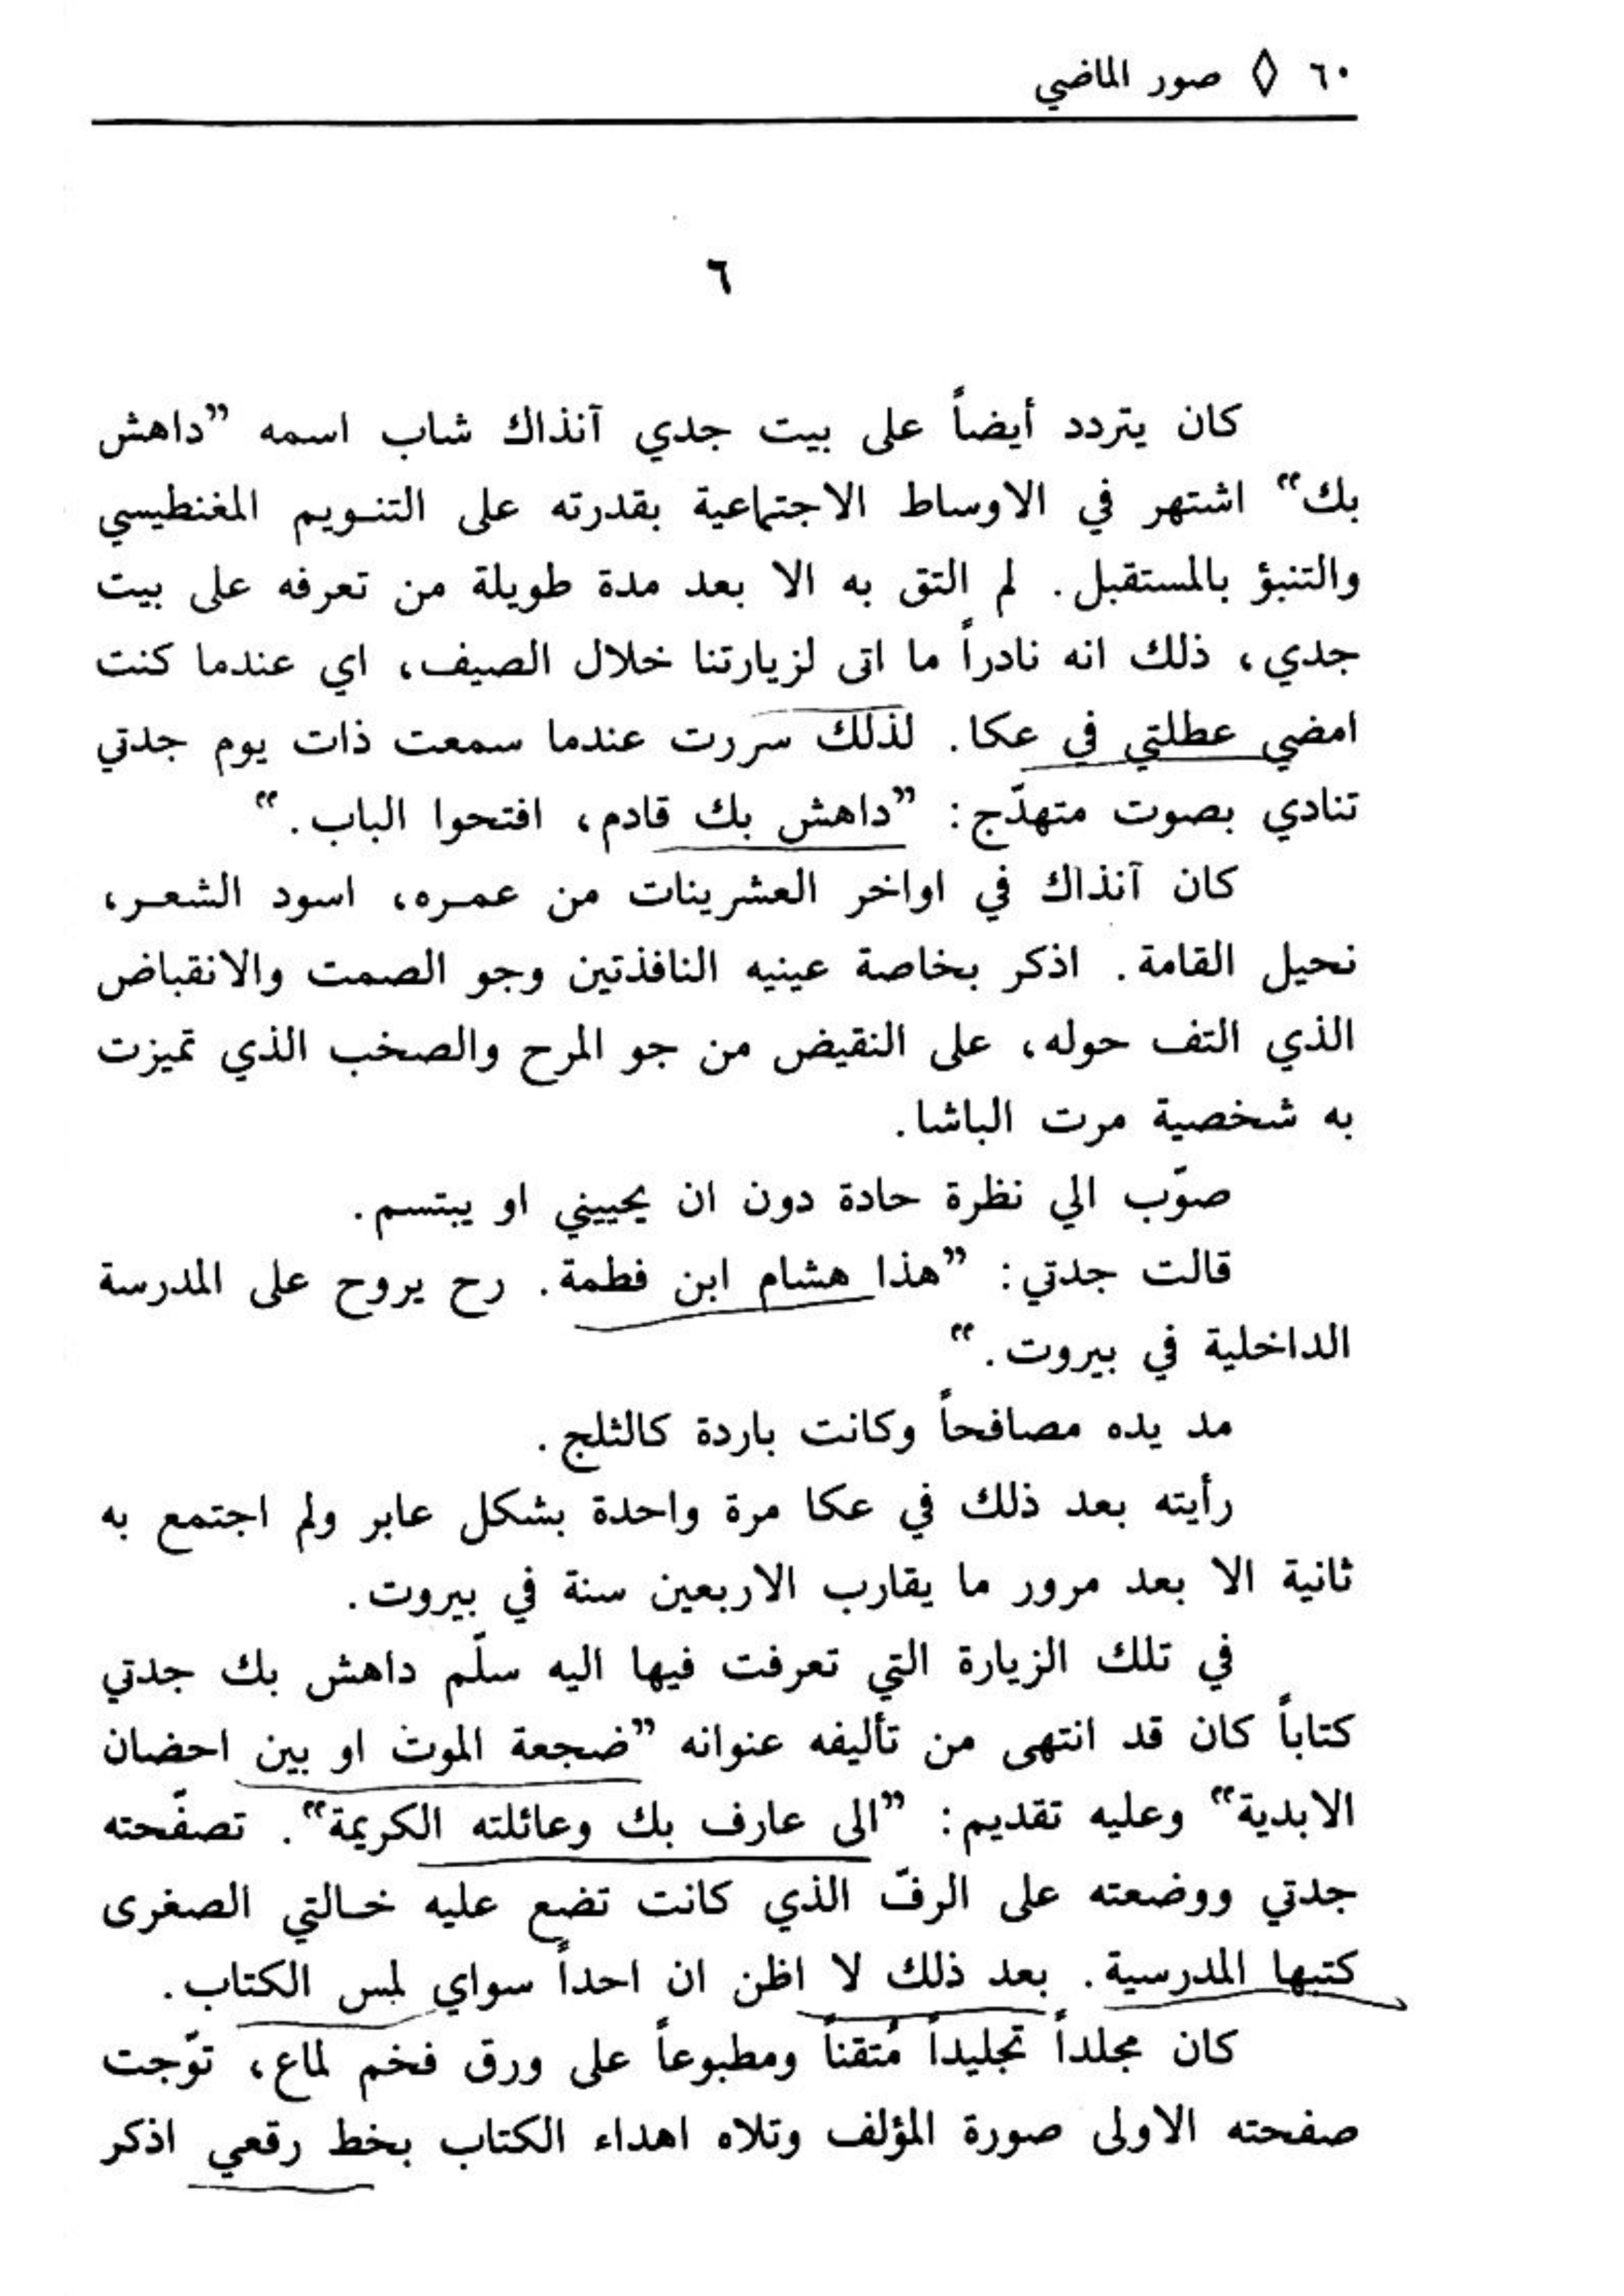 ٦٠ ◊ صور الماضي
٦
كان يتردد أيضاً على بيت جدي آنذاك شاب اسمه ”داهش
بك“ اشتهر في الاوساط الاجتماعية بقدرته على التنويم المغنطيسي
والتنبؤ بالمستقبل. لم التق به الا بعد مدة طويلة من تعرفه على بيت
جدي، ذلك انه نادراً ما اتى لزيارتنا خلال الصيف، اي عندما كنت
امضي عطلتي في عكا. لذلك سررت عندما سمعت ذات يوم جدتي
تنادي بصوت متهدّج: ”داهش بك قادم، افتحوا الباب.“
كان آنذاك في اواخر العشرينات من عمره، اسود الشعر،
نحيل القامة. اذكر بخاصة عينيه النافذتين وجو الصمت والانقباض
الذي التف حوله، على النقيض من جو المرح والصخب الذي تميزت
به شخصية مرت الباشا.
صوّب الي نظرة حادة دون ان يحييني او يبتسم.
قالت جدتي: ”هذا هشام ابن فطمة. رح يروح على المدرسة
الداخلية في بيروت.“
مد يده مصافحاً وكانت باردة كالثلج.
رأيته بعد ذلك في عكا مرة واحدة بشكل عابر ولم اجتمع به
ثانية الا بعد مرور ما يقارب الاربعين سنة في بيروت.
في تلك الزيارة التي تعرفت فيها اليه سلّم داهش بك جدتي
كتاباً كان قد انتهى من تأليفه عنوانه ”ضجعة الموت او بين احضان
الابدية“ وعليه تقديم: ”الى عارف بك وعائلته الكريمة“. تصفّحته
جدتي ووضعته على الرفّ الذي كانت تضع عليه خالتي الصغرى
كتبها المدرسية. بعد ذلك لا اظن ان احداً سواي لمس الكتاب.
كان مجلداً تجليداً مُتقناً ومطبوعاً على ورق فخم لماع، توّجت
صفحته الاولى صورة المؤلف وتلاه اهداء الكتاب بخط رقعي اذكر